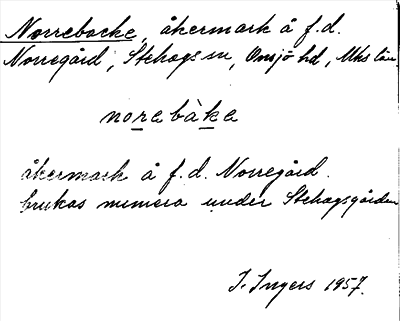 Norrebacke, åkermark å f.d.
Norregård, Stehags sn, Onsjö hd, Mhs län.
norebàke
åkermark å f.d. Norregård.
brukas numera under Stehagsgården
I. Ingers 1957.